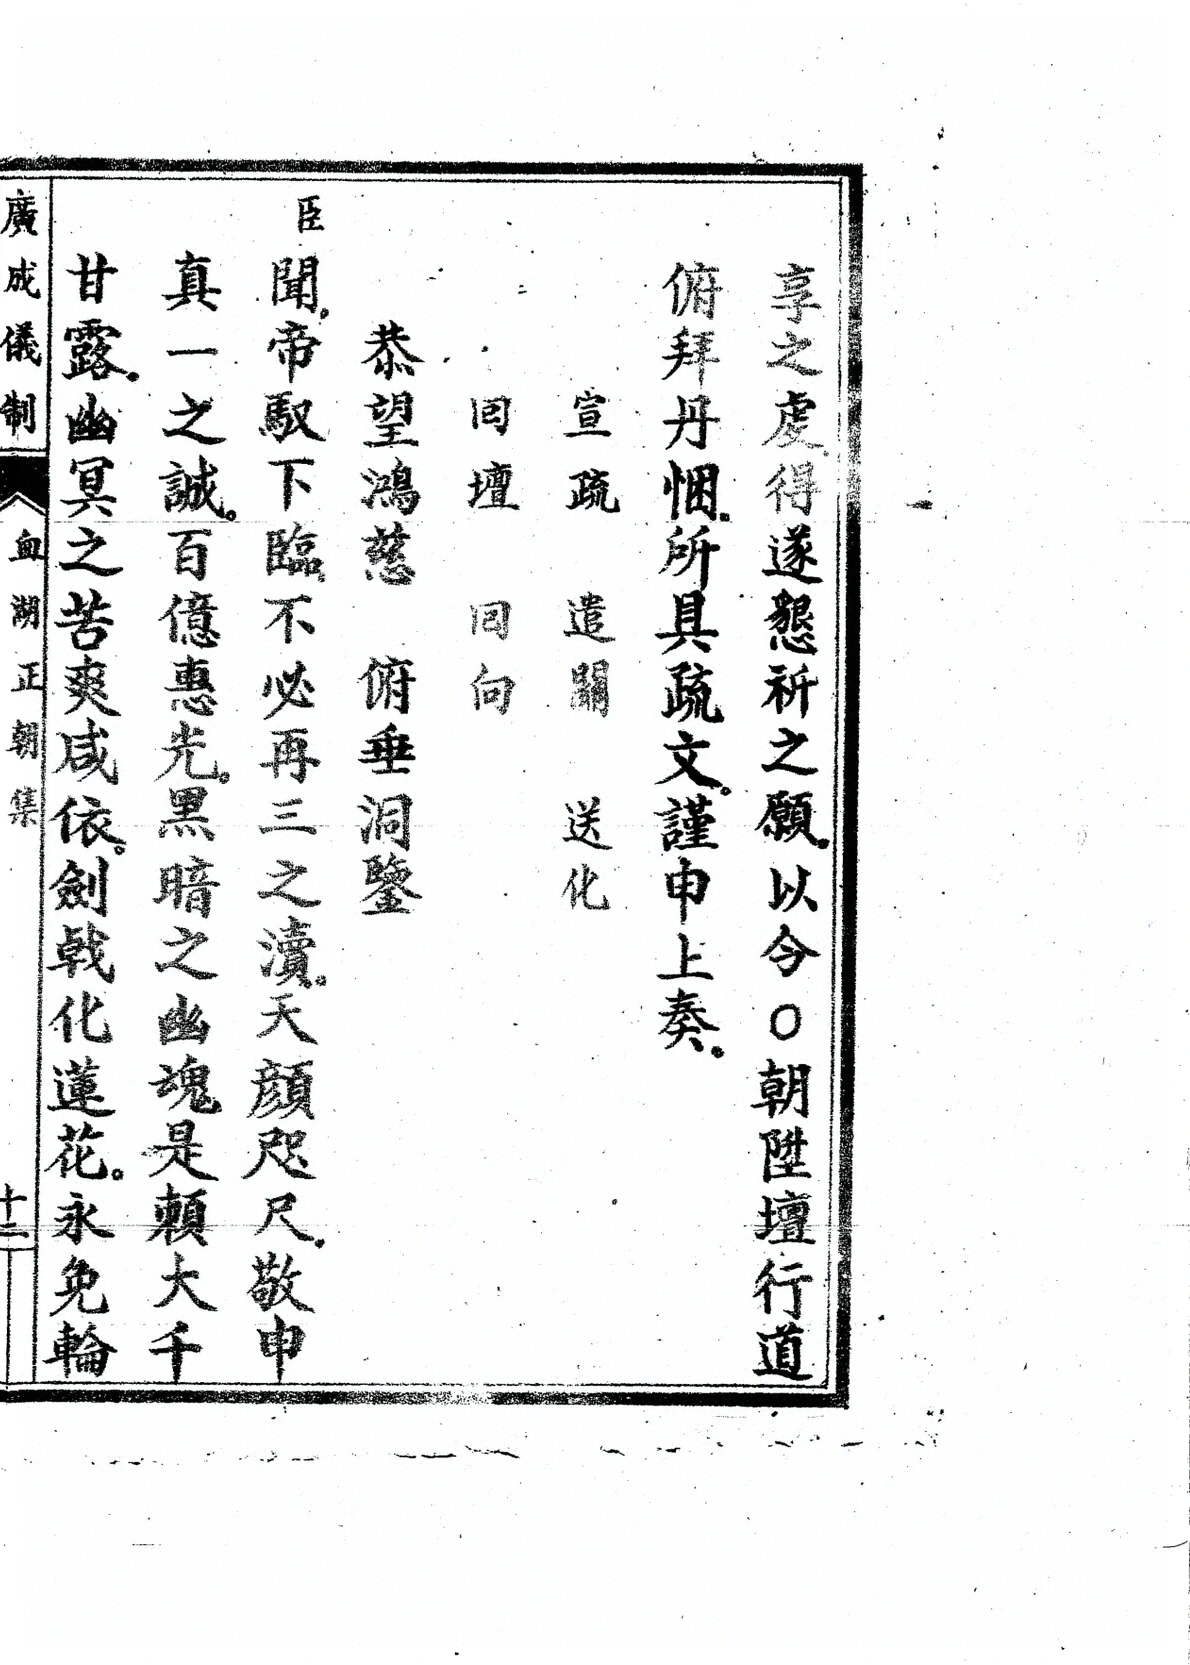 享之虔得遂懇祈之願。以今○朝陞壇行道
俯拜丹悃。所具疏文。謹申上奏。
宣疏　遣關　送化
囘壇　囘向
恭望鴻慈　俯垂洞鑒
臣聞。帝馭下臨。不必再三之瀆。天顔咫尺。敬申
真一之誠。百億惠光。黑暗之幽魂是頼大千
甘露。幽冥之苦爽咸依。劍戟化蓮花。永免輪
廣成儀制　血湖正朝集　十二